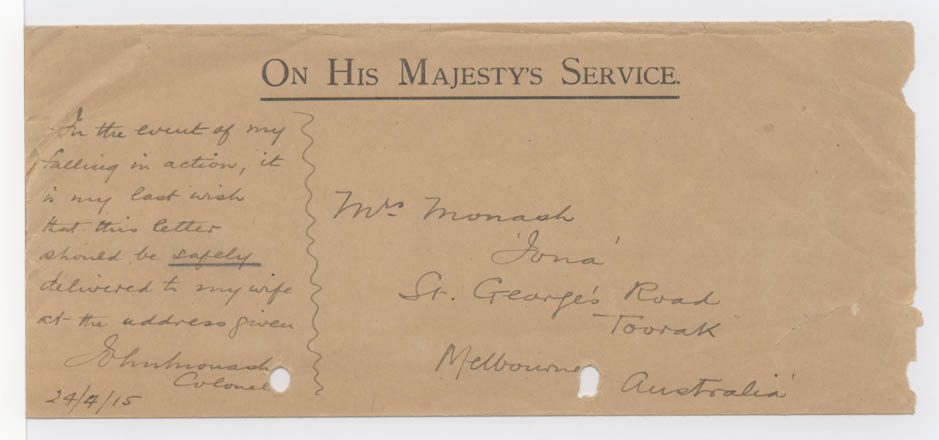 On His Majesty's Service.
In the event of my
falling in action, it
is my last wish
that this letter
should be safely
delivered to my wife
at the address given
John Monash
Colonel
24/4/15
Mrs Monash
'Iona'
St. George's Road
Toorak
Melbourne
Australia